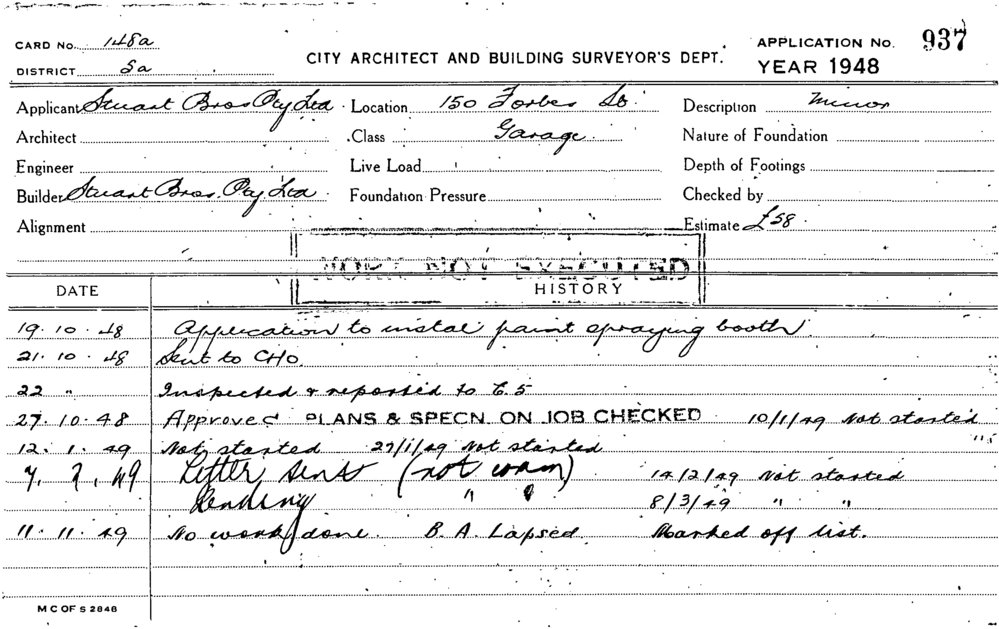 CARD No. 148a
DISTRICT 5a
CITY ARCHITECT AND BUILDING SURVEYOR'S DEPT.
APPLICATION No. 937
YEAR 1948
Applicant Stuart Bros Pty Ltd Location 150 Forbes St. Description Minor
Architect Class Garage Nature of Foundation
Engineer Live Load Depth of Footings
Builder Stuart Bros. Pty Ltd Foundation Pressure Checked by
Alignment Estimate £58
WORK NOT EXECUTED
DATE HISTORY
19.10.48 Application to instal paint spraying booth
21.10.48 Sent to CHO.
22 " Inspected & reported to
27.10.48 Approved PLANS & SPECN. ON JOB CHECKED 10/1/49 Not started
12.1.49 Not started 27/1/49 Not started " "
7.2.49 Letter sent (not 14/2/49 Not started
Pending " " 8/3/49 " "
11.11.49 No work done. B.A. Lapsed. Marked off list.
M C OF S 2848